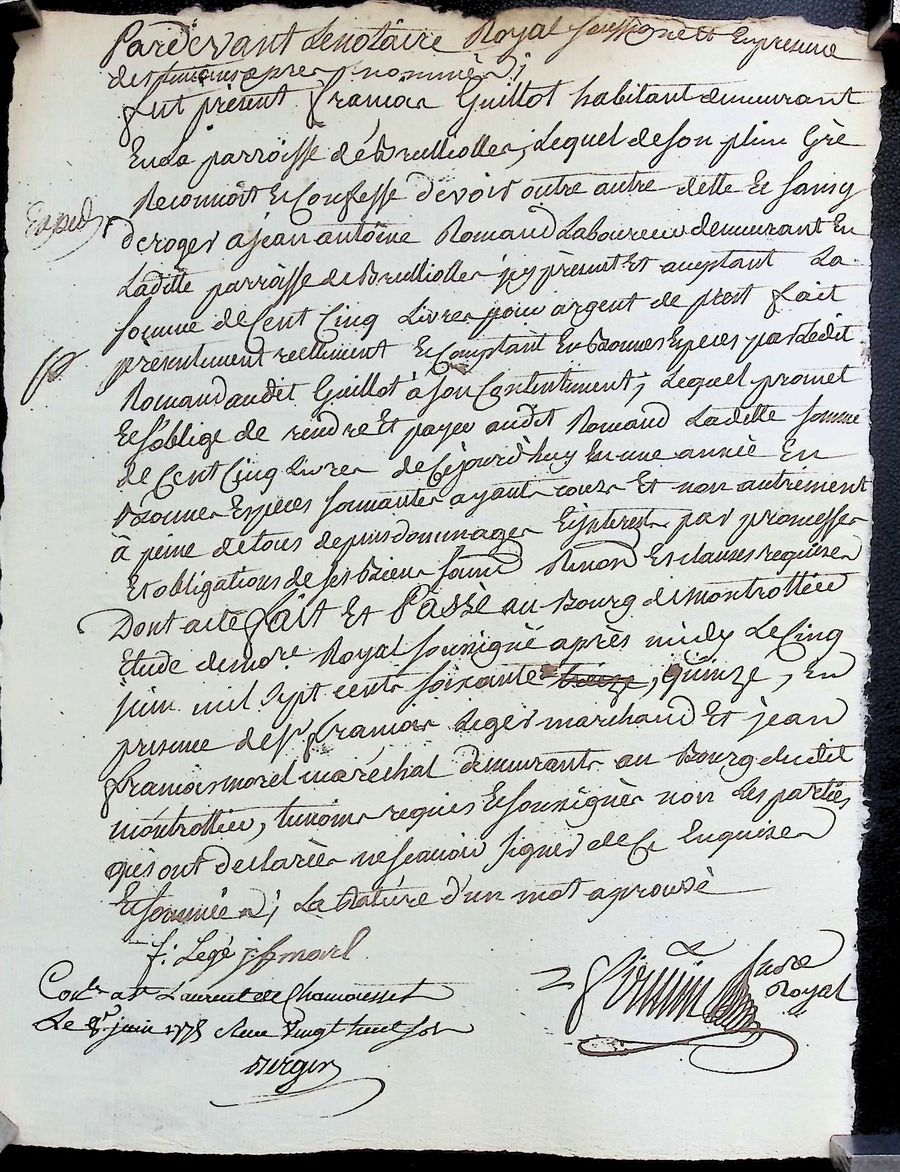 Pardevant Le notaire Royal soussigné et En presence
des temoins apres nommés;
fut présent francois Guillot habitant demeurant
En La parroisse de Brulliolles, Lequel de son plein Gré
Reconnoit Et Confesse devoir outre autre dette Et sans y
Exped
deroger a jean antoine Romand Laboureur demeurant En
Laditte parroisse de Brulliolles icy présent Et aceptant La
somme de Cent Cinq Livres pour argent de prest fait
presentement reellement Et Comptant En Bonnes Especes par Ledit
Romand audit Guillot à son Contentement; Lequel promet
Et s'oblige de rendre Et payer audit Romand Laditte somme
de Cent Cinq Livres de Cejourd'huy En une année En
Bonnes Especes sonnantes ayant cours Et non autrement
à peine de tous depens dommages Et interests par promesses
Et obligations de ses Biens soumis Renon Et clauses requises
Dont acte fait Et Passé au Bourg de montrottier
Etude de nore Royal soussigné après midy Le Cinq
juin mil sept cent soixante treize, quinze, En
presence de sr francois Leger marchand Et jean
francois morel maréchal demeurants au Bourg dudit
montrottier, temoins requis Et soussignés non Les parties
qui ont declarées ne scavoir signer de Ce Enquises
Et sommées; La Rature d'un mot aprouvé
f. Legé j f morel
Contr. a St Laurent de Chamousset
Le 8r juin 1775 Recu Vingt huit sols
Berger
nore
Royal